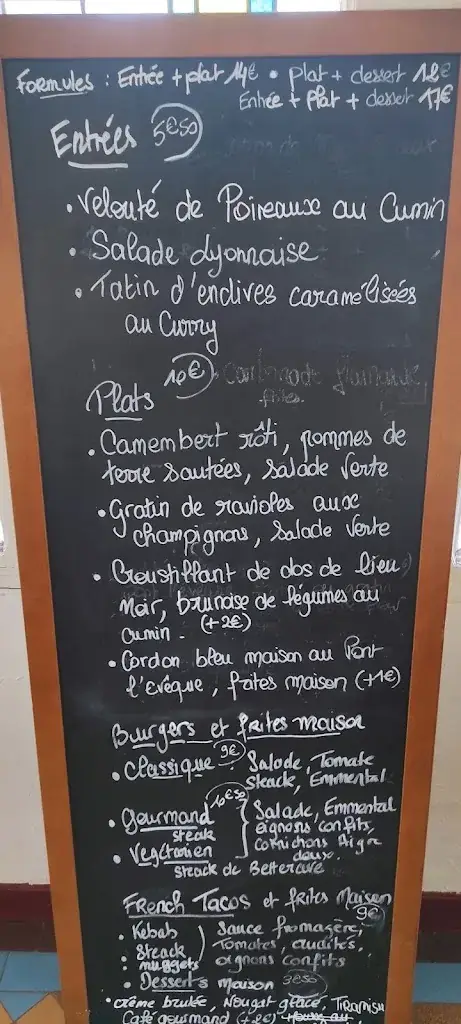 Formules : Entrée + plat 14€ • plat + dessert 12€
Entrée + Plat + dessert 17€
Entrées 5€50
• Velouté de Poireaux au Cumin
• Salade Lyonnaise
• Tatin d'endives caramélisées
au Curry
Plats 10€
• Camembert rôti, pommes de
terre sautées, salade verte
• Gratin de ravioles aux
champignons, salade verte
• Croustillant de dos de lieu
Noir, brunoise de légumes au
cumin. (+2€)
• Cordon bleu maison au Pont
l'evêque, frites maison (+1€)
Burgers et frites maison
• Classique 9€ Salade, Tomate
steack, Emmental
• Gourmand 10€50 Salade, Emmental
steak oignons confits,
• Végétarien cornichons Aigre
doux.
steack de Betterave
French Tacos et frites Maison
9€
• Kebab Sauce fromagère,
• Steack Tomates, crudités,
• nuggets oignons confits
• Desserts maison 3€50
• crème brulée, Nougat glacé, Tiramisu
Café gourmand (+2€)